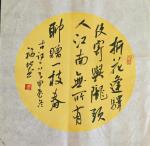 折花逢驛
使寄與隴頭
人江南無所有
聊贈一枝春